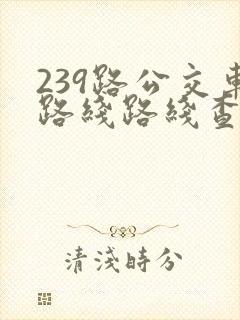 239路公交車
路綫路綫查
清淺時分